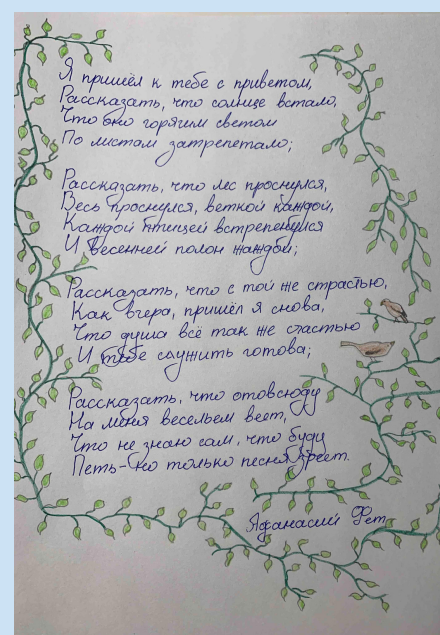 Я пришёл к тебе с приветом,
Рассказать, что солнце встало,
Что оно горячим светом
По листам затрепетало;
Рассказать, что лес проснулся,
Весь проснулся, веткой каждой,
Каждой птицей встрепенулся
И весенней полон жаждой;
Рассказать, что с той же страстью,
Как вчера, пришёл я снова,
Что душа всё так же счастью
И тебе служить готова;
Рассказать, что отовсюду
На меня весельем веет,
Что не знаю сам, что буду
Петь - но только песня зреет.
Афанасий Фет